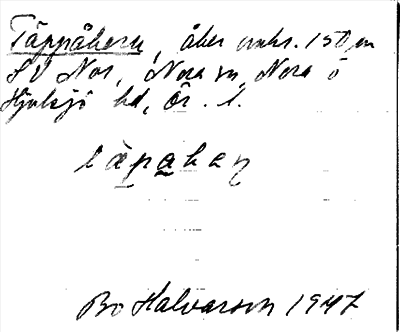 Täppåkern, åker omkr. 150 m
SV Nor, Nora sn, Nora o
Hjulsjö hd, Ör. l.
täpakaɳ
Bo Halvarson 1947